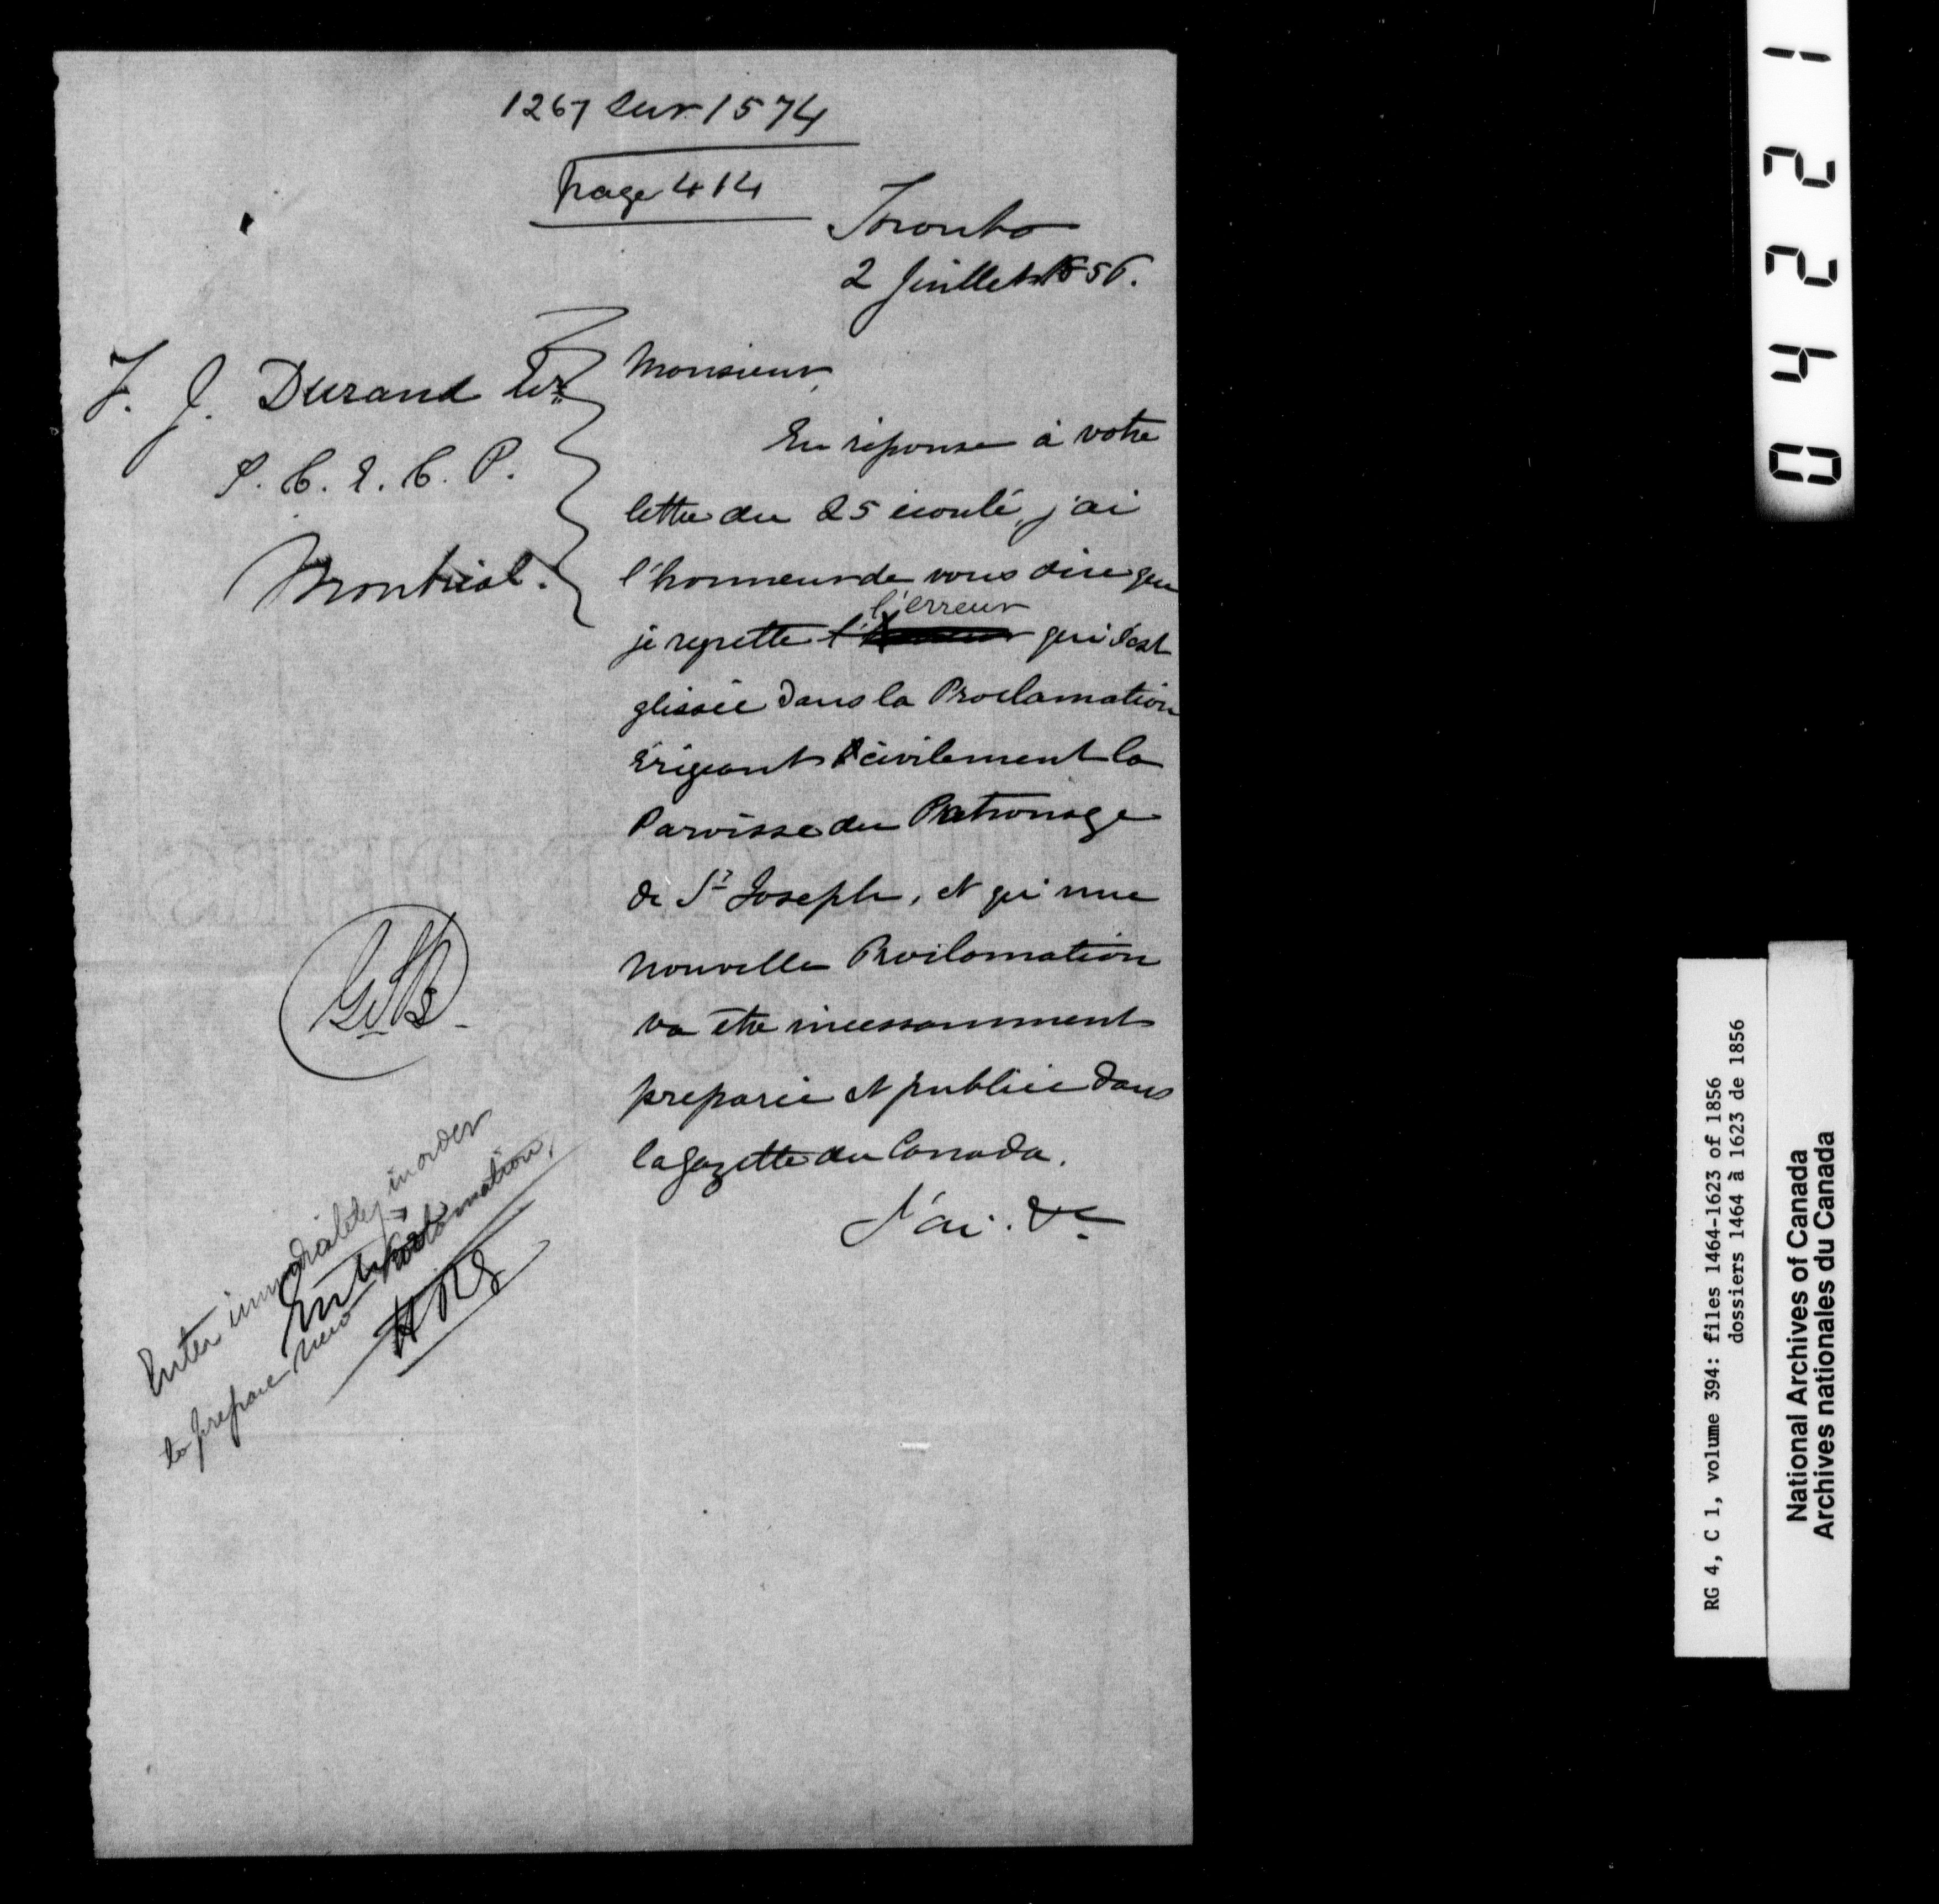 1267 sur 1574
page 414
Toronto
2 Juillet 1856.
F. J. Durand Ecr
S. C. E. C. P.
Montréal.
Monsieur,
En réponse à votre
lettre du 25 écoulé, j'ai
l'honneur de vous dire que
je regrette l'erreur qui s'est
glissée dans la Proclamation
érigeant civilement la
Paroisse du Patronage
de St Joseph, et qu'une
nouvelle Proclamation
va être incessamment
preparée et publiée dans
la Gazette du Canada.
J'ai. &c
Enter immediately in order
to prepare new Proclamation,
04221
RG 4, C 1, volume 394: files 1464-1623 of 1856
dossiers 1464 à 1623 de 1856
National Archives of Canada
Archives nationales du Canada